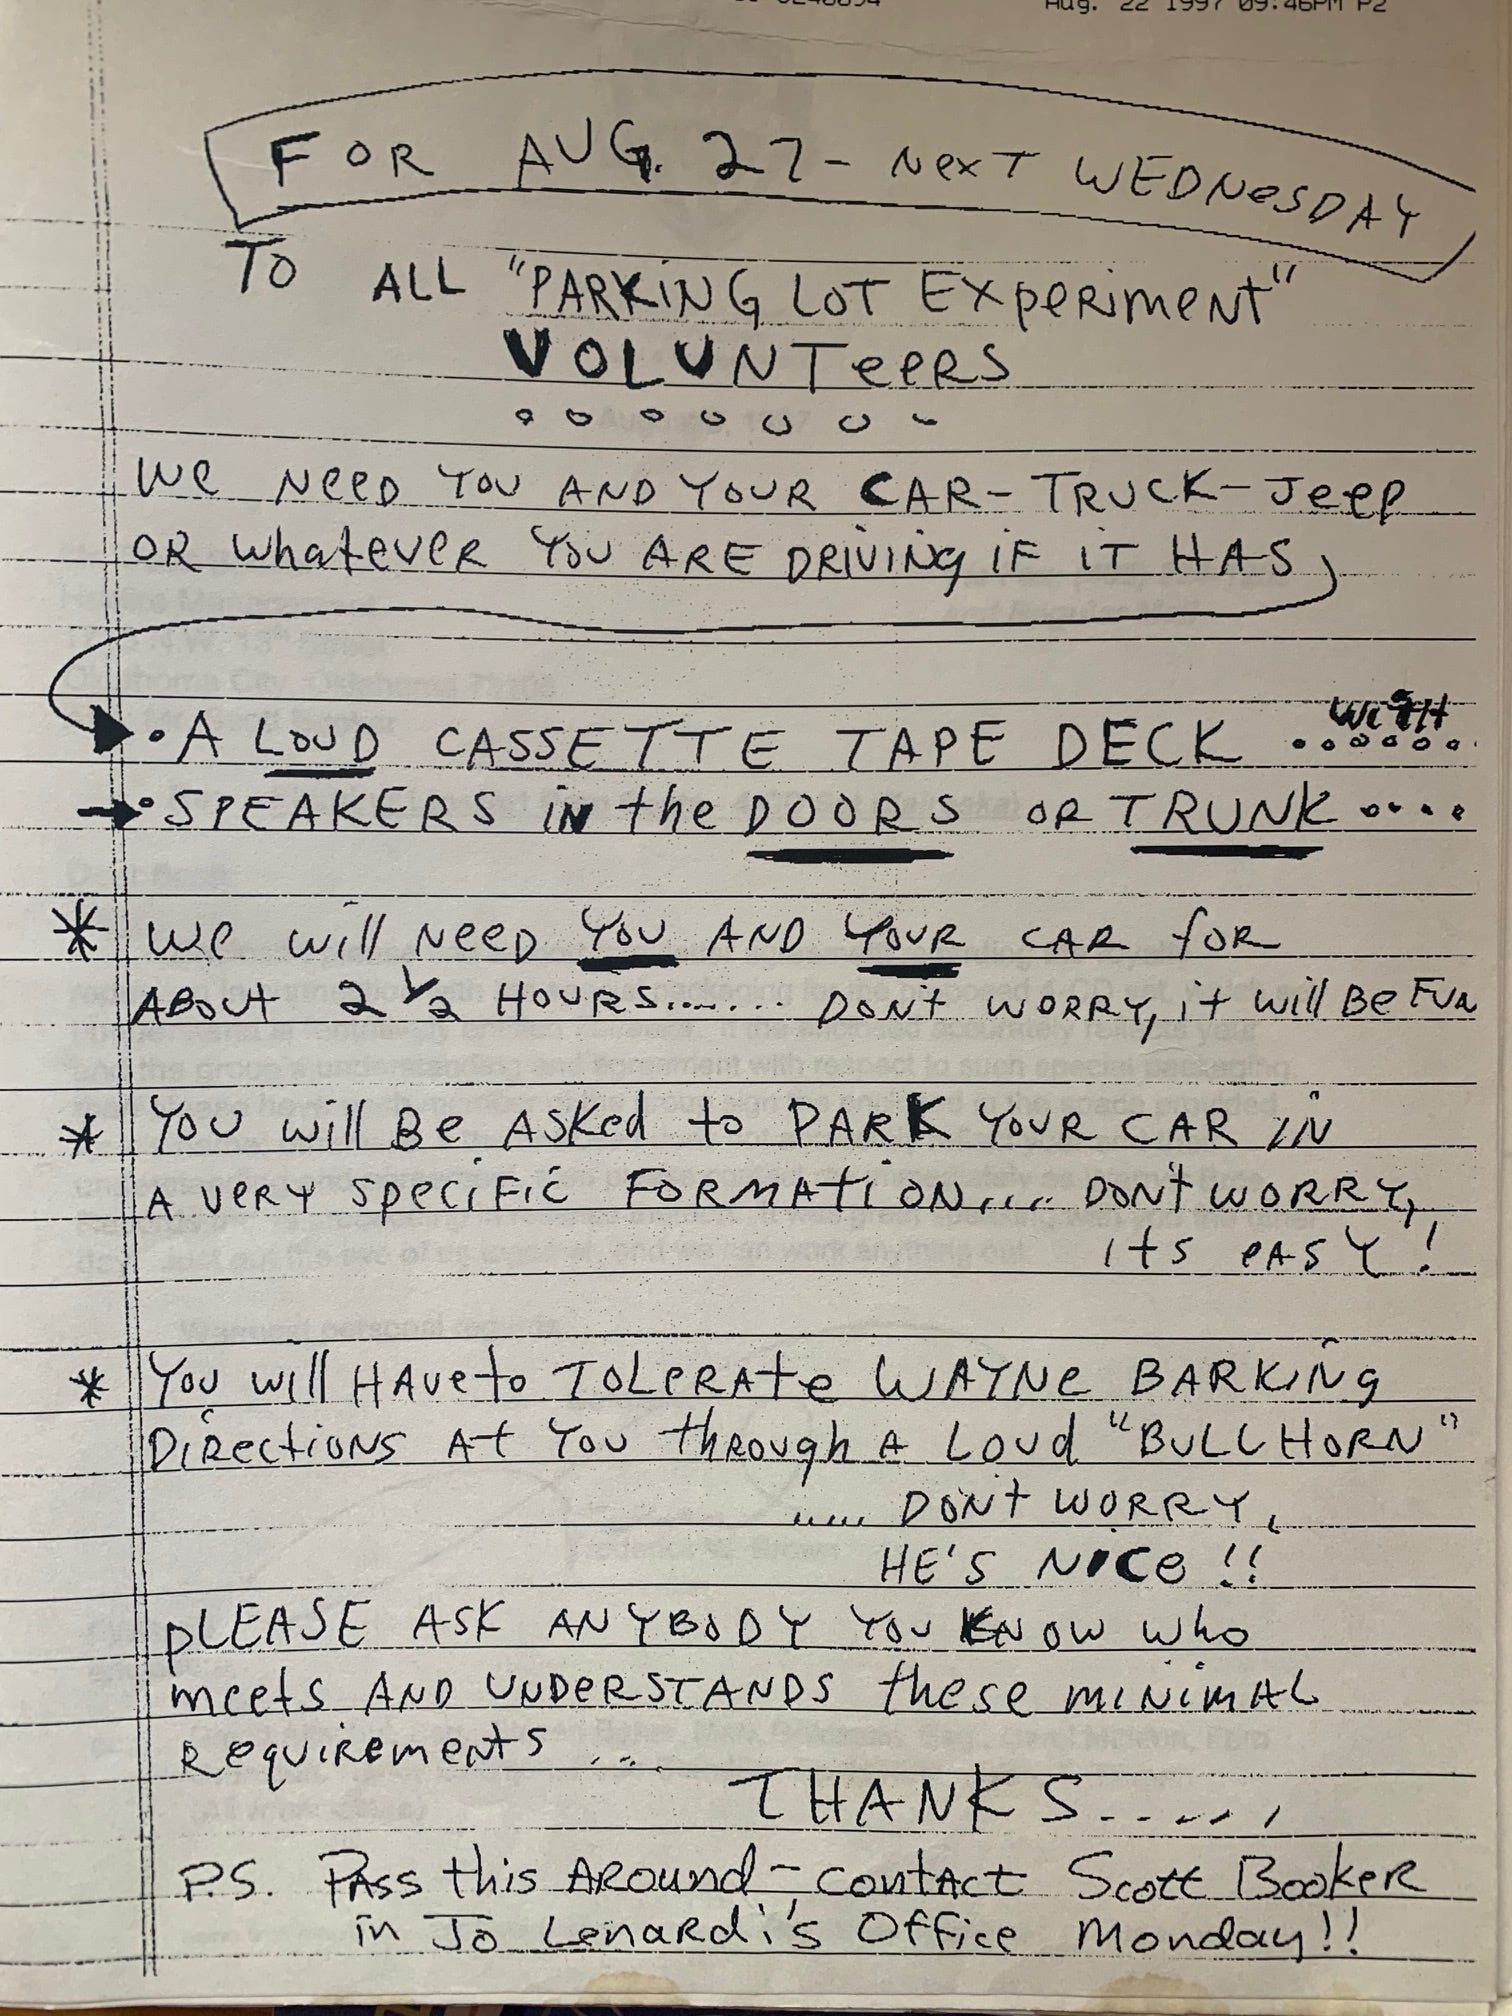 Aug. 22 1997 09:46PM P2
FOR AUG. 27 - NexT WEDNesDAY
TO ALL "PARKiNG LOT ExpeRimeNT"
VOLUNTeeRS
We NeeD YOU AND YOUR CAR - TRUCK - Jeep
OR whatever YOU ARE DRIVING iF iT HAS
• A LOUD CASSETTE TAPE DECK ....... WiTH
• SPEAKERS iN the DOORS OR TRUNK ....
* We will NeeD YOU AND YOUR CAR foR
ABOUt 2 1/2 HOURS....... DON't WORRY, it will Be FUN
* YOU will Be ASKed to PARK YOUR CAR IN
A VeRY SpeciFic FORMATION.... DON't WORRY,
its eASY!
* YOU will HAVe to TOLeRAte WAYNe BARKiNg
DiRectiONS At YOU thROUgh A LOUd "BULLHORN"
..... DON't WORRY,
HE'S NiCe!!
pLEASE ASK ANYBODY YOU KNOW who
meets AND UNDeRSTANDS these miNiMAL
RequiRemeNts ...
THANKS.....,
P.S. PAss this AROUNd - coNtAct Scott BookeR
in Jo LeNARdi's Office Monday!!